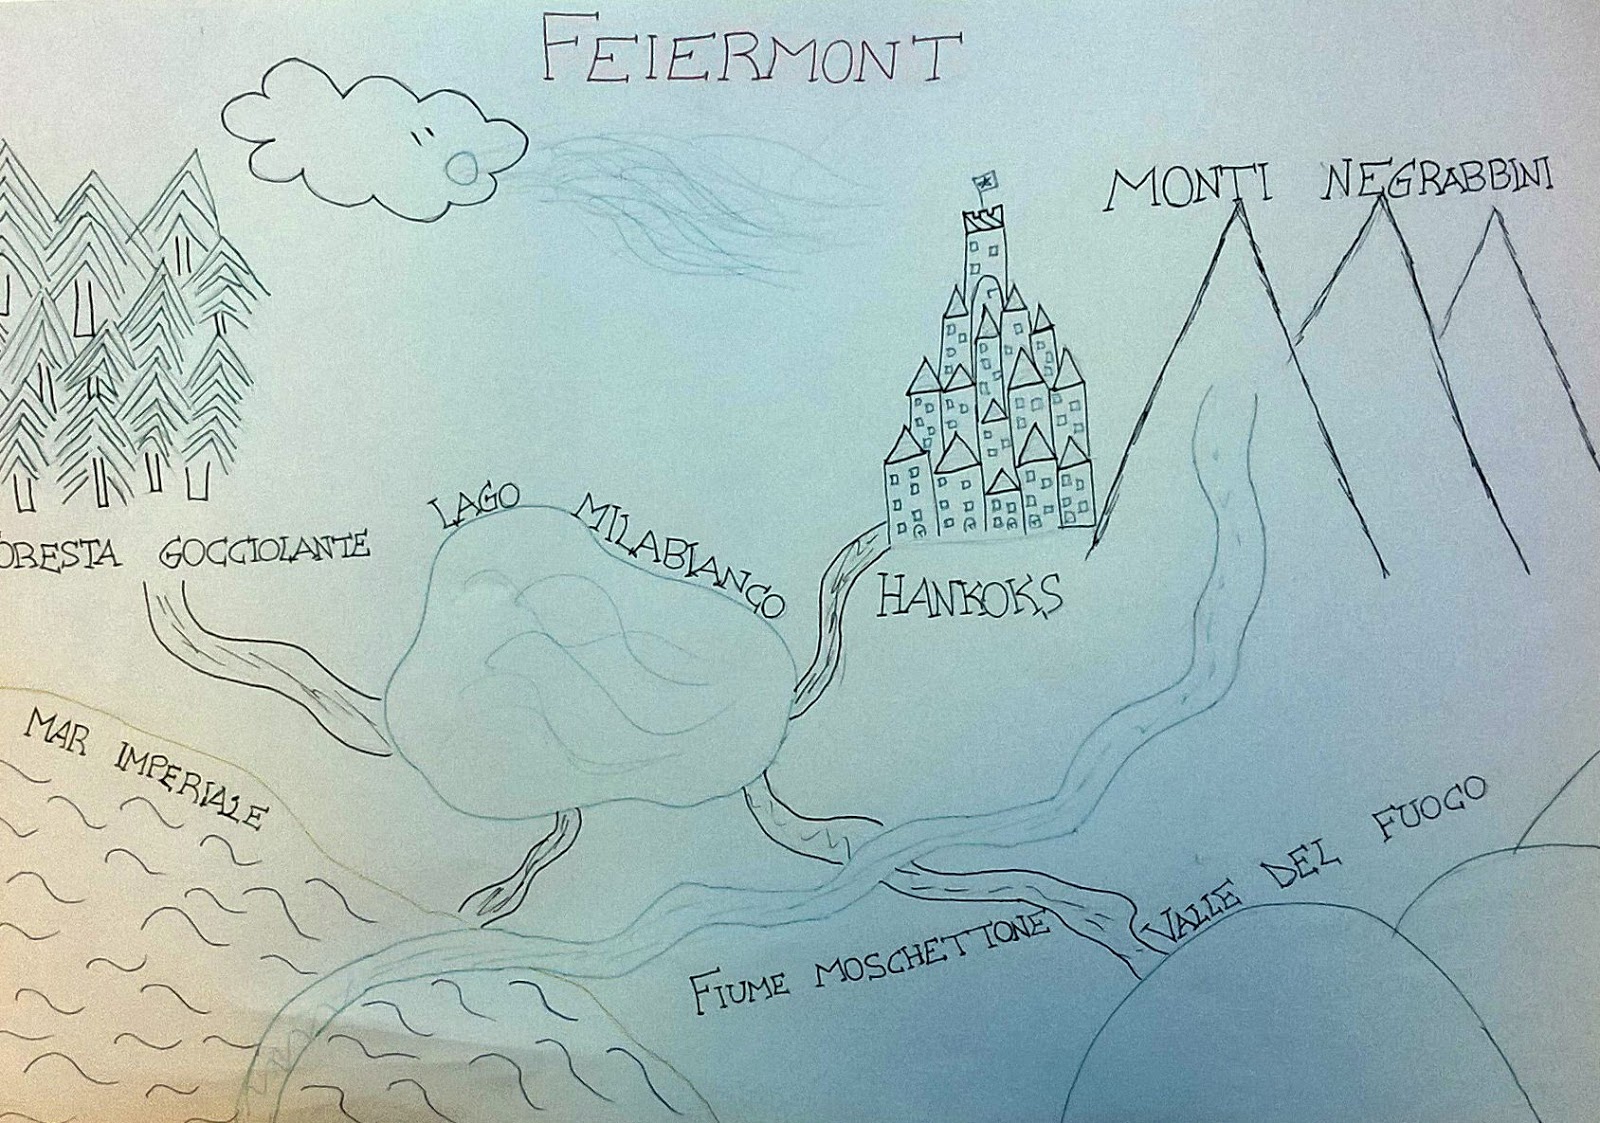 FEIERMONT
MONTI NEGRABBINI
LAGO MILABIANCO
ORESTA GOCCIOLANTE
HANKOKS
MAR IMPERIALE
VALLE DEL FUOCO
FIUME MOSCHETTONE